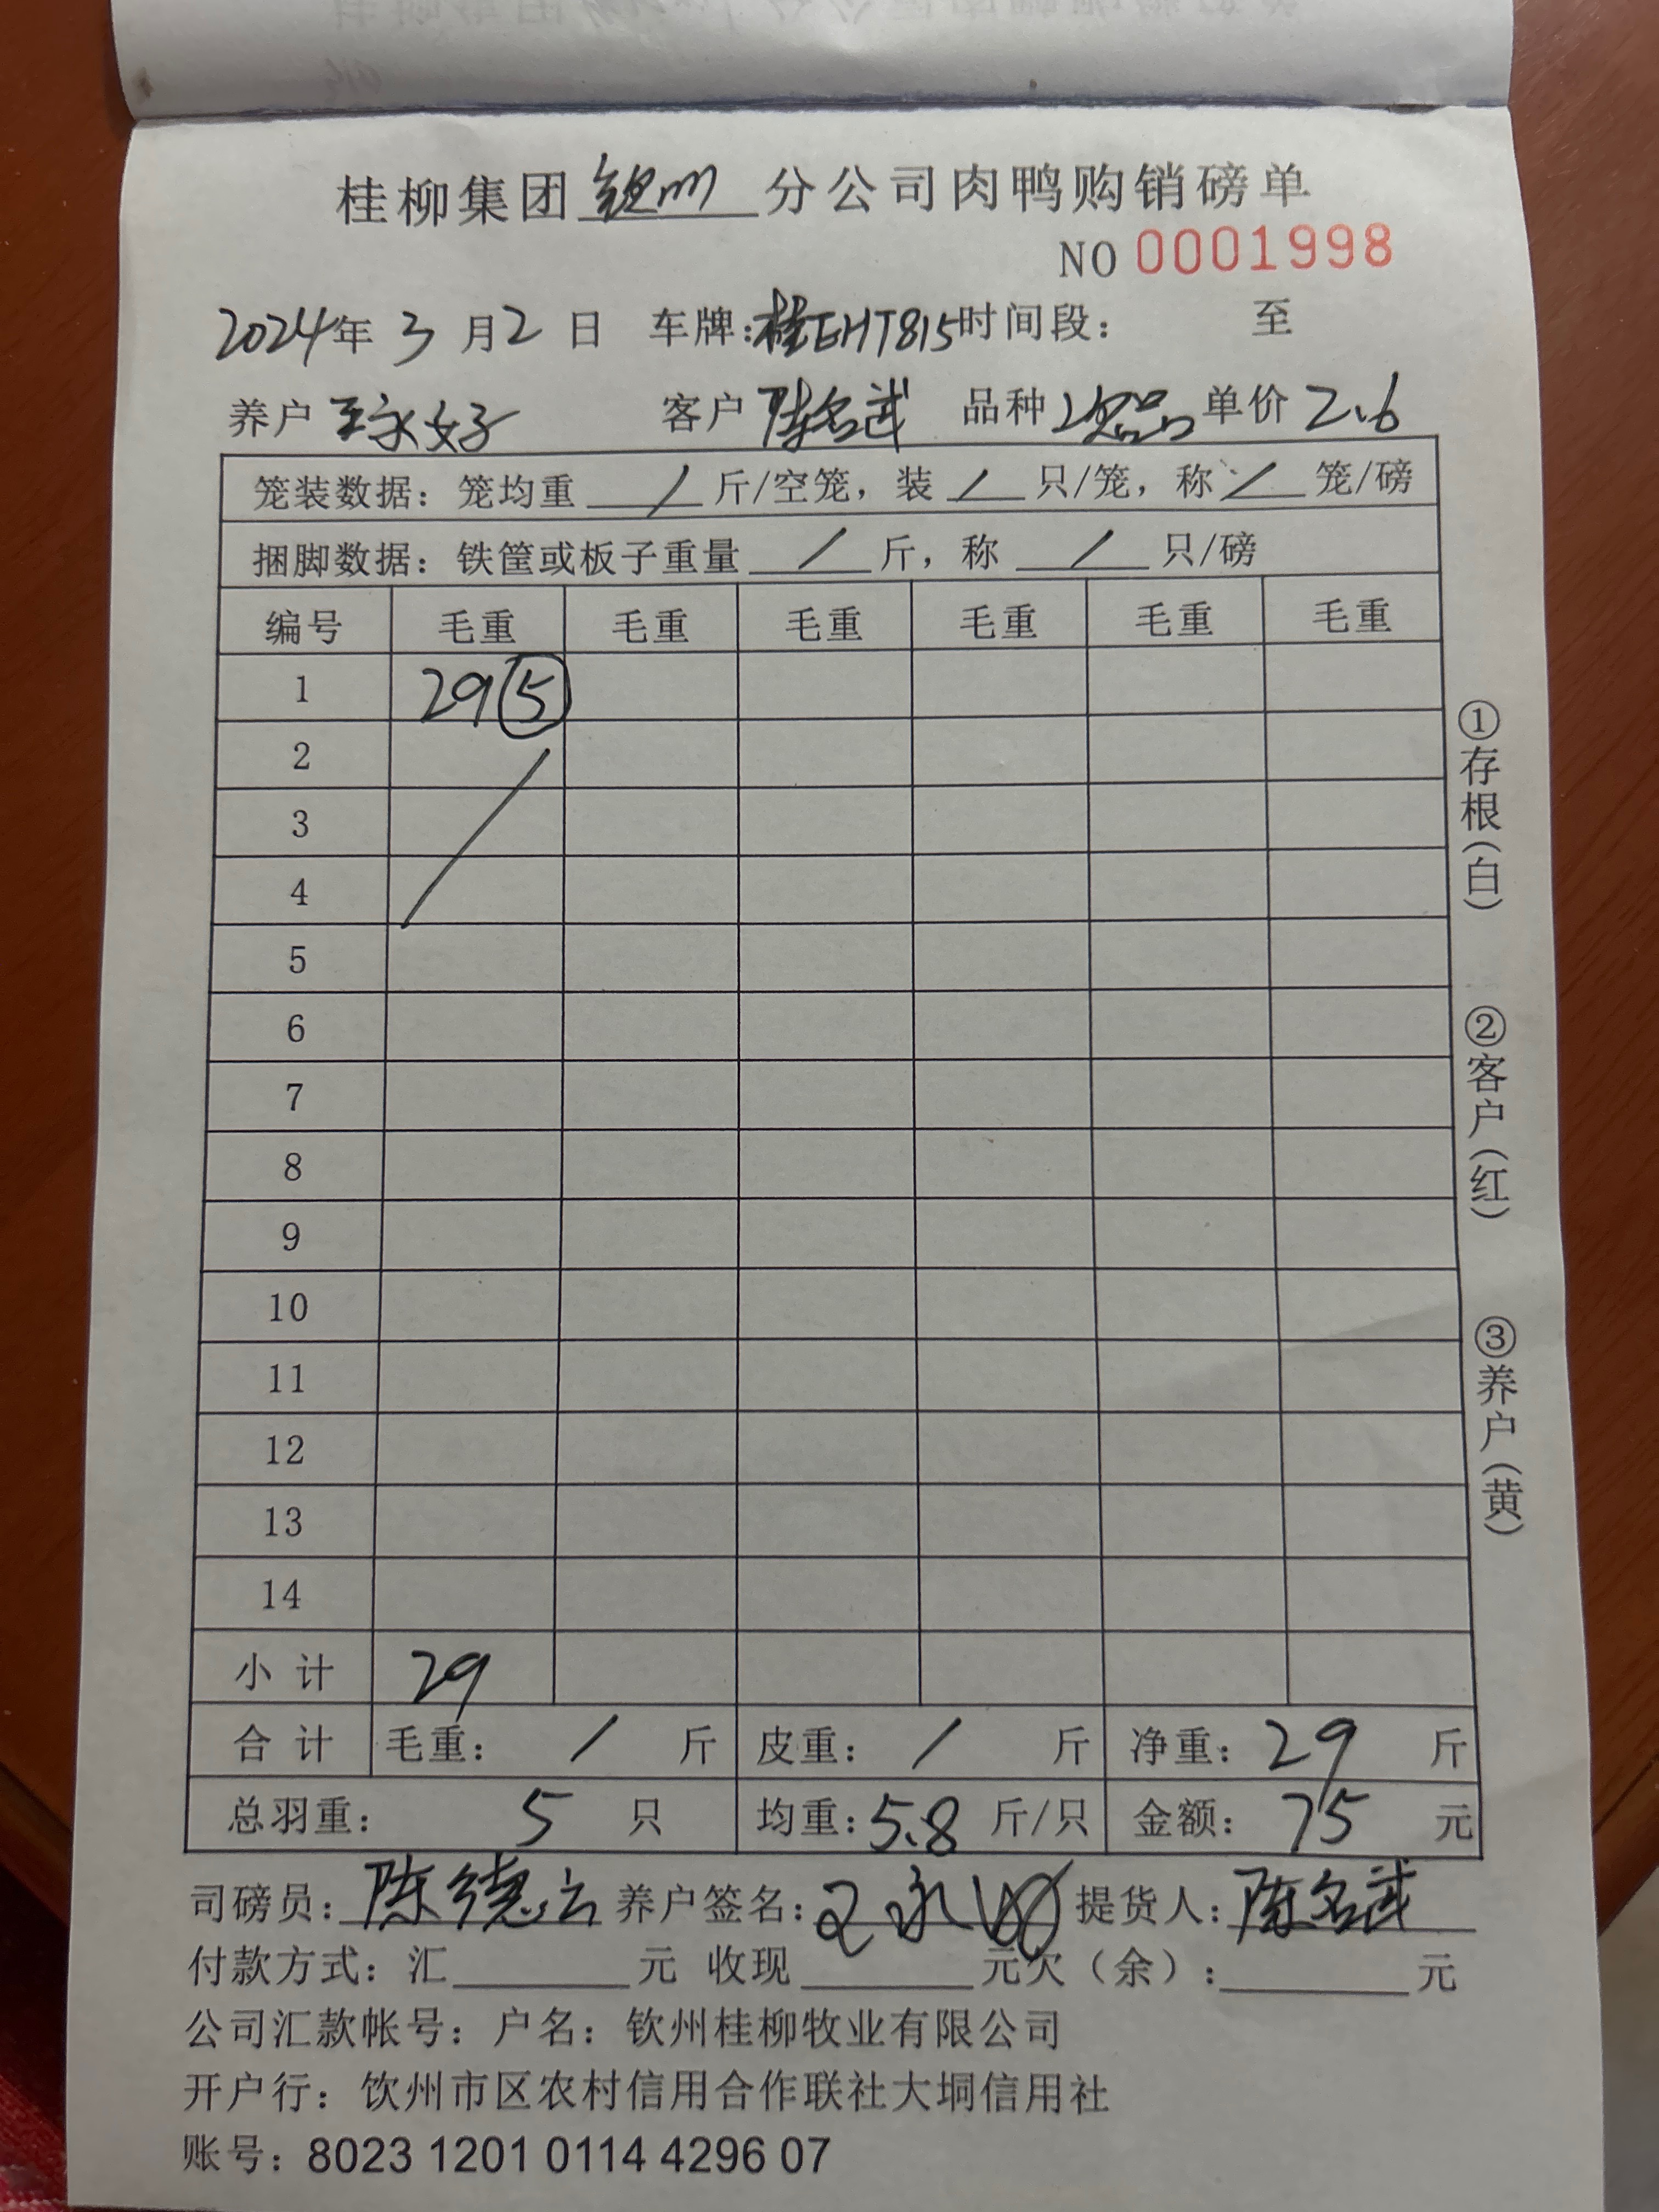 桂柳集团 钦州 分公司肉鸭购销磅单
NO 0001998
2024年 3 月 2 日 车牌:桂EHT815 时间段: 至
养户 王永好 客户 陈名武 品种 次品 单价 2.6
笼装数据: 笼均重 / 斤/空笼, 装 / 只/笼, 称 / 笼/磅
捆脚数据: 铁筐或板子重量 / 斤, 称 / 只/磅
编号 毛重 毛重 毛重 毛重 毛重 毛重
1 29⑤
2
3
4
5
6
7
8
9
10
11
12
13
14
小 计 29
合 计 毛重: / 斤 皮重: / 斤 净重: 29 斤
总羽重: 5 只 均重: 5.8 斤/只 金额: 75 元
司磅员: 陈德云 养户签名: 王永 提货人: 陈名武
付款方式: 汇 元 收现 元欠(余): 元
公司汇款帐号: 户名: 钦州桂柳牧业有限公司
开户行: 钦州市区农村信用合作联社大垌信用社
账号: 8023 1201 0114 4296 07
①存根(白)
②客户(红)
③养户(黄)